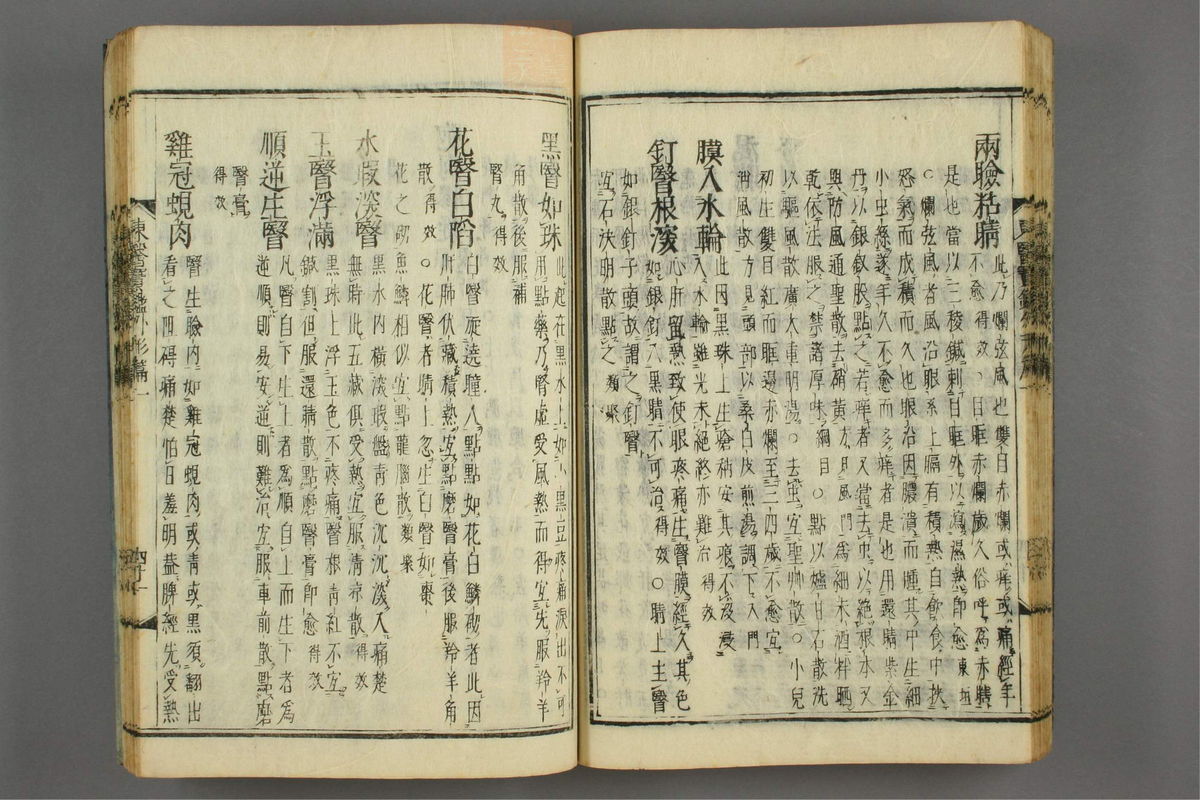 兩瞼粘睛此乃爛弦風也雙目赤爛或痒或痛經年
不愈得效目眶赤爛歲久俗呼爲赤瞎
是也當以三稜鍼刺目眶外以瀉濕熱卽愈東垣
○爛弦風者風沿眼系上膈有積熱自飮食中挾
怒氣而成積而久也眼沿因膿潰而腫其中生細
小虫絲遂年久不愈而多痒者是也用還睛紫金
丹以銀釵股點之若痒者又當去虫以絶根本又
與防風通聖散去硝黃爲細末酒拌晒
乾依法服之禁諸厚味綱目○點以爐甘石散洗
以驅風散廣大重明湯○去虫宜聖艸散○小兒
初生雙目紅而眶邊赤爛至三四歲不愈宜
消風散方見頭部以桑白皮煎湯調下入門
膜入水輪此因黑珠上生瘡稍安其痕不沒浸
入水輪雖光未絶終亦難治得效
釘瞖根深心肝留熱致使眼疼痛生瞖膜經久其色
如銀釘入黑睛不可治得效○睛上生瞖
如銀釘子頭故謂之釘瞖
宜石決明散點之類聚
黑瞖如珠此起在黑水上如小黑豆疼痛淚出不可
用點藥乃腎虛受風熱而得宜先服羚羊
角散後服補
腎丸得效
花瞖白陷白瞖旋遶瞳人點點如花白鱗砌者此因
肝肺伏藏積熱宜點磨瞖膏後服羚羊角
散得效○花瞖者睛上忽生白瞖如棗
花之砌魚鱗相似宜點龍腦散類聚
水瑕深瞖黑水內橫深瑕盤靑色沉沉深入痛楚
無時此五藏俱受熱宜服淸凉散得效
玉瞖浮滿黑珠上浮玉色不疼痛瞖根靑紅不宜
鍼割但服還睛散點磨瞖膏卽愈得效
順逆生瞖凡瞖自下生上者爲順自上而生下者爲
逆順則易安逆則難治宜服車前散點磨
瞖膏
得效
雞冠蜆肉瞖生瞼內如雞冠蜆肉或靑或黑須翻出
看之阻碍痛楚怕日羞明蓋脾經先受熱